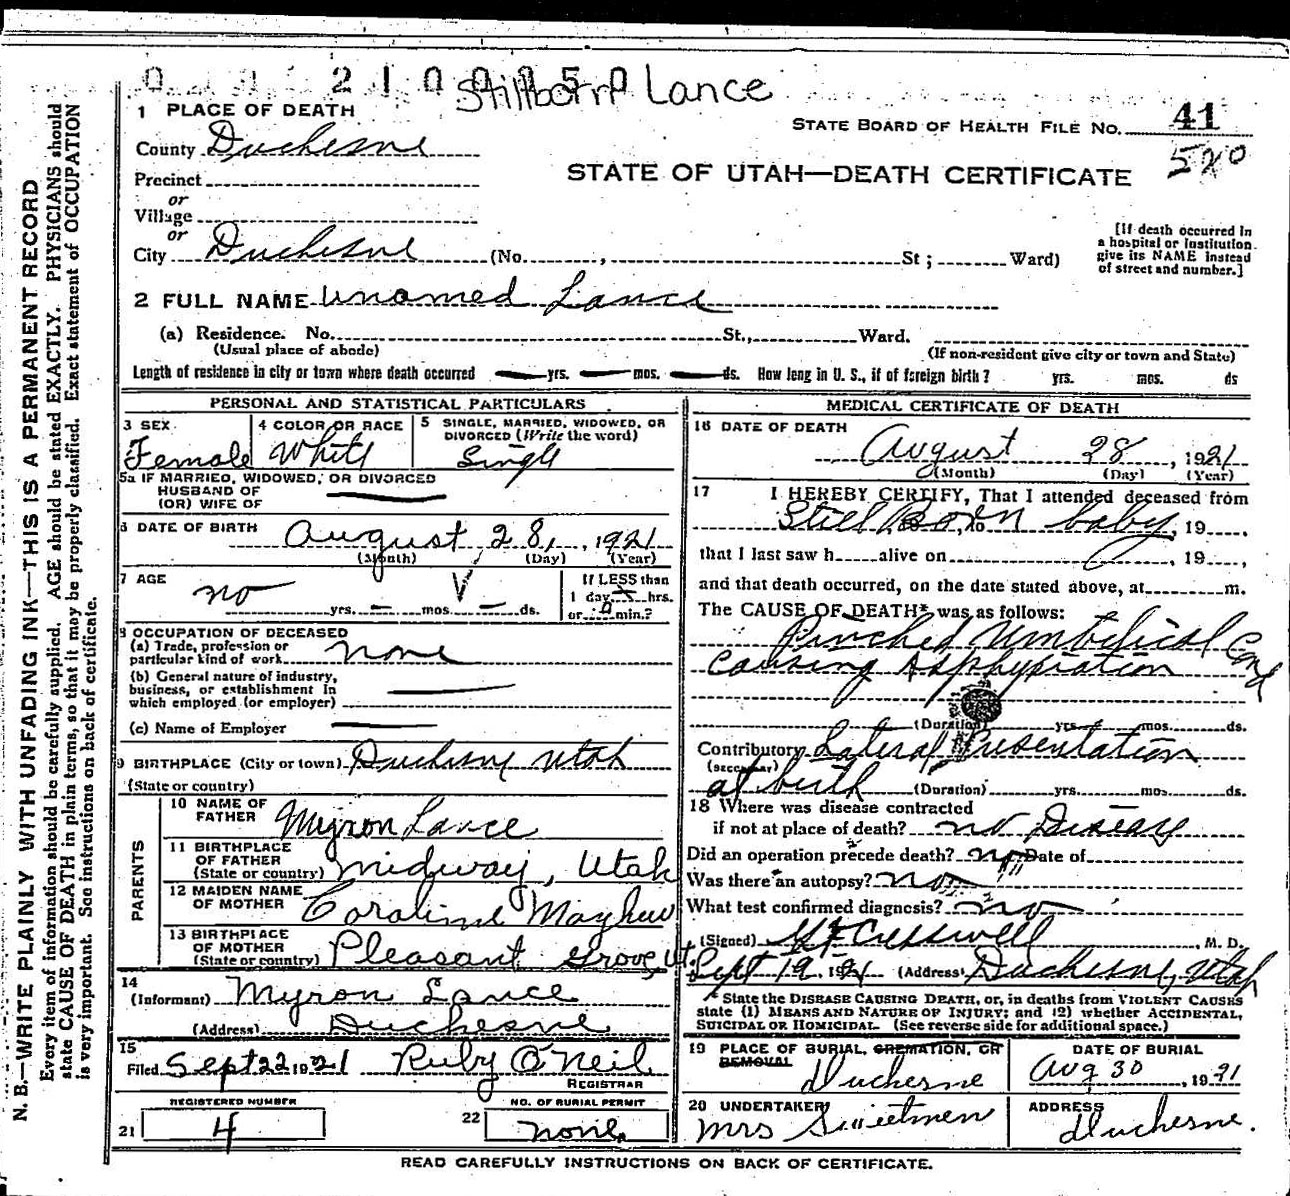 0 2 1 0 0 0 5 0
Stillborn Lance
1 PLACE OF DEATH
STATE BOARD OF HEALTH FILE NO. 41
520
County Duchesne
STATE OF UTAH—DEATH CERTIFICATE
Precinct
or
Village
or
City Duchesne (No. , St ; Ward)
[If death occurred in
a hospital or institution
give its NAME instead
of street and number.]
2 FULL NAME Unamed Lance
(a) Residence. No. St., Ward.
(Usual place of abode)
(If non-resident give city or town and State)
Length of residence in city or town where death occurred — yrs. — mos. — ds. How long in U. S., if of foreign birth? yrs. mos. ds
PERSONAL AND STATISTICAL PARTICULARS
3 SEX
Female
4 COLOR OR RACE
White
5 SINGLE, MARRIED, WIDOWED, OR
DIVORCED (Write the word)
Single
5a IF MARRIED, WIDOWED, OR DIVORCED
HUSBAND OF
(OR) WIFE OF —
6 DATE OF BIRTH
August 28, , 1921
(Month) (Day) (Year)
7 AGE
no yrs. — mos. — ds.
If LESS than
1 day, hrs.
or 0 min.?
8 OCCUPATION OF DECEASED
(a) Trade, profession or
particular kind of work none
(b) General nature of industry,
business, or establishment in
which employed (or employer) —
(c) Name of Employer —
9 BIRTHPLACE (City or town) Duchesne Utah
(State or country)
PARENTS
10 NAME OF
FATHER Myron Lance
11 BIRTHPLACE
OF FATHER
(State or country) Midway, Utah
12 MAIDEN NAME
OF MOTHER Coraline Mayhew
13 BIRTHPLACE
OF MOTHER
(State or country) Pleasant Grove, Ut.
14
(Informant) Myron Lance
(Address) Duchesne
15
Filed Sept 22 1921 Ruby O'Neil
REGISTRAR
REGISTERED NUMBER
21 4
NO. OF BURIAL PERMIT
22 none
MEDICAL CERTIFICATE OF DEATH
16 DATE OF DEATH
August 28 , 1921
(Month) (Day) (Year)
17 I HEREBY CERTIFY, That I attended deceased from
Still Born baby, 19 ,
that I last saw h alive on , 19 ,
and that death occurred, on the date stated above, at m.
The CAUSE OF DEATH* was as follows:
Pinched Umbelical Cord
causing Asphyxiation
(Duration) yrs. mos. ds.
Contributory Lateral Presentation
(SECONDARY)
at birth (Duration) yrs. mos. ds.
18 Where was disease contracted
if not at place of death? no Disease
Did an operation precede death? no Date of
Was there an autopsy? no
What test confirmed diagnosis? no
(Signed) Cresswell , M. D.
Sept 19 1921 (Address) Duchesne, Utah
* State the DISEASE CAUSING DEATH, or, in deaths from VIOLENT CAUSES
state (1) MEANS AND NATURE OF INJURY; and (2) whether ACCIDENTAL,
SUICIDAL OR HOMICIDAL. (See reverse side for additional space.)
19 PLACE OF BURIAL, CREMATION, OR
REMOVAL
Duchesne
DATE OF BURIAL
Aug 30 , 1921
20 UNDERTAKER
Mrs
ADDRESS
Duchesne.
READ CAREFULLY INSTRUCTIONS ON BACK OF CERTIFICATE.
N. B.—WRITE PLAINLY WITH UNFADING INK—THIS IS A PERMANENT RECORD
Every item of information should be carefully supplied. AGE should be stated EXACTLY. PHYSICIANS should
state CAUSE OF DEATH in plain terms, so that it may be properly classified. Exact statement of OCCUPATION
is very important. See instructions on back of certificate.